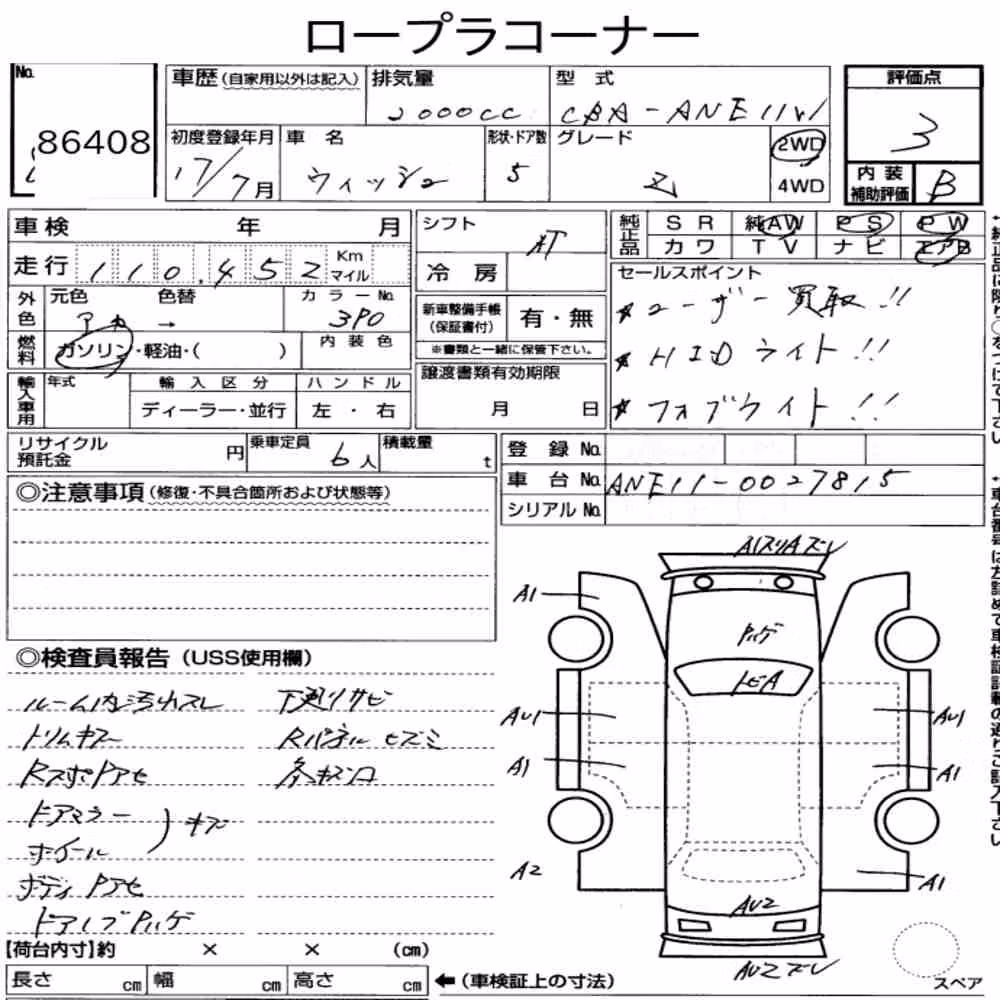 ロープラコーナー
No.
86408
車歴(自家用以外は記入)
排気量
2000CC
型 式
CBA-ANE11W
評価点
3
初度登録年月
17/7月
車 名
ウィッシュ
形状・ドア数
5
グレード
Z
2WD
4WD
内装補助評価
B
車検 年 月
走行 110,452 Km マイル
外色
元色 色替
アカ →
カラーNo.
3P0
燃料
ガソリン・軽油・( )
内装色
輸入車用
年式
輸入区分
ディーラー・並行
ハンドル
左・右
シフト
AT
冷房
新車整備手帳(保証書付)
有・無
※書類と一緒に保管下さい。
譲渡書類有効期限
月 日
純正品
SR 純AW PS PW
カワ TV ナビ エアB
セールスポイント
★ユーザー買取!!
★HIDライト!!
★フォブライト!!
リサイクル預託金 円
乗車定員 6人
積載量 t
登録No.
車台No. ANE11-0027815
シリアルNo.
◎注意事項(修復・不具合箇所および状態等)
◎検査員報告(USS使用欄)
ルーム内汚れスレ
トリムキズ
RスポPアセ
ドアミラー
ホイール
) キズ
ボディPアセ
ドアノブPハゲ
下廻りサビ
Rパネルヒズミ
各キズ凹
A1スリAズレ
A1
Pハゲ
トビA
AU1
AU1
A1
A1
A2
A1
AU2
AU2ズレ
スペア
【荷台内寸】約 × × (cm)
長さ cm 幅 cm 高さ cm
←(車検証上の寸法)